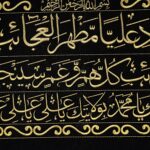 بسم الله الرحمن الرحيم
د عليا مظهر العجائب
ئب كل هم وغم سينجلي
يا محمد بولايتك يا علي يا علي